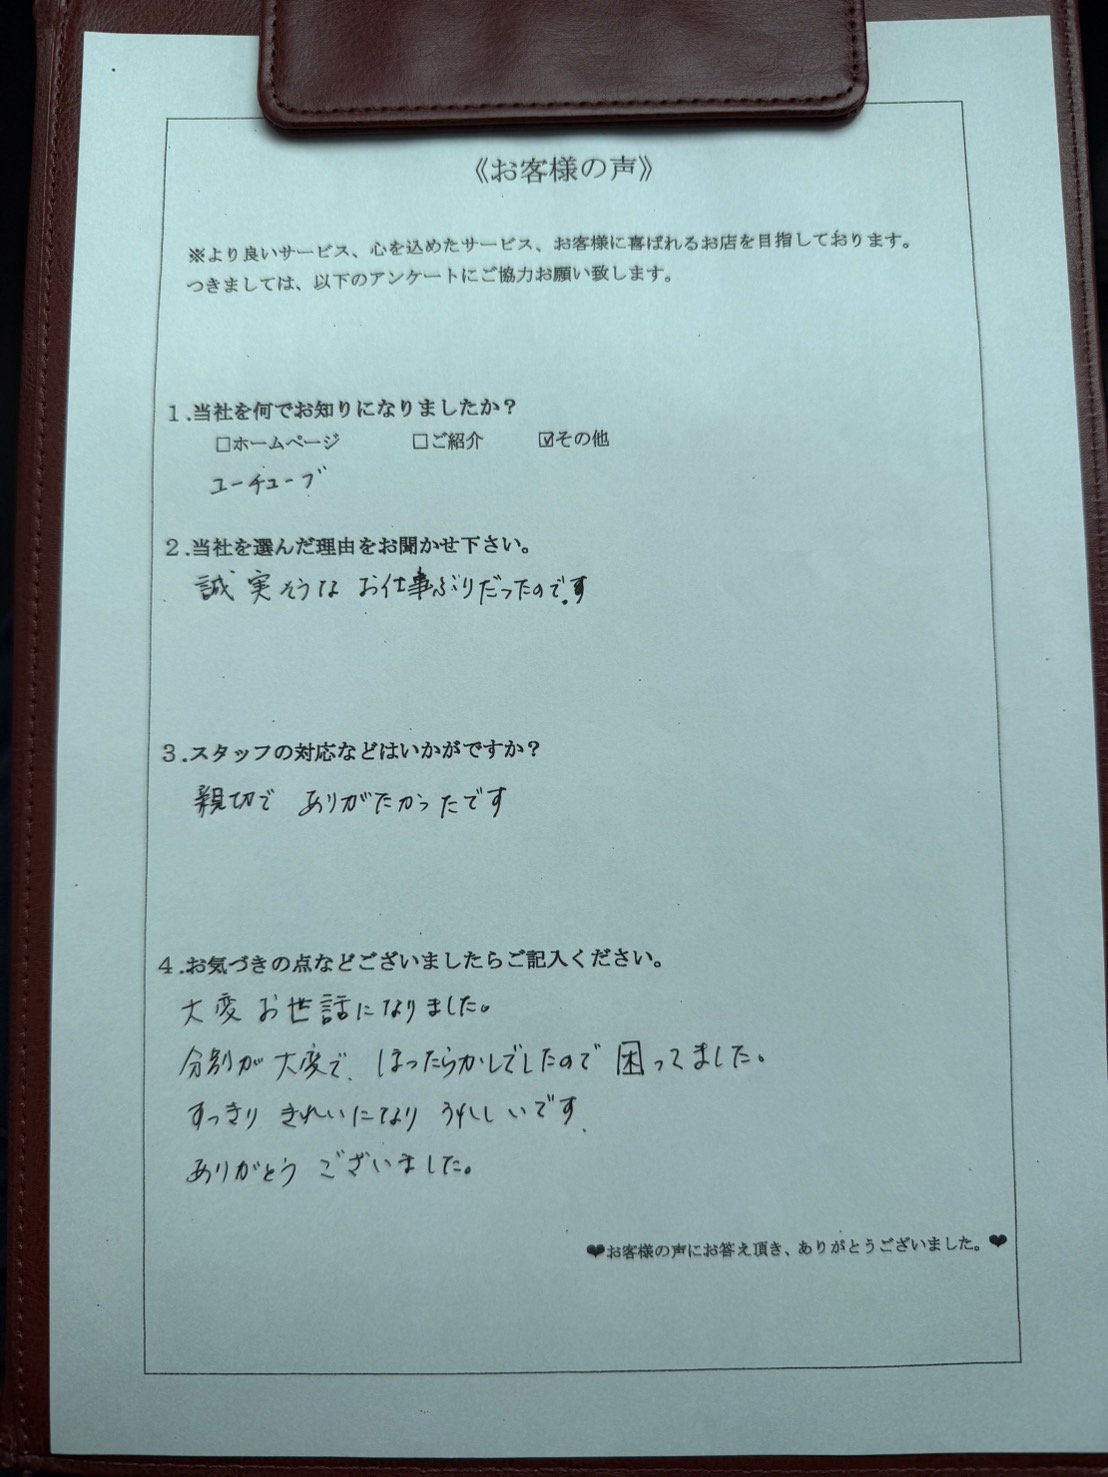 《お客様の声》
※より良いサービス、心を込めたサービス、お客様に喜ばれるお店を目指しております。
つきましては、以下のアンケートにご協力お願い致します。
1.当社を何でお知りになりましたか?
□ホームページ □ご紹介 ☑その他
ユーチューブ
2.当社を選んだ理由をお聞かせ下さい。
誠実そうな お仕事ぶりだったのです
3.スタッフの対応などはいかがですか?
親切で ありがたかったです
4.お気づきの点などございましたらご記入ください。
大変 お世話になりました。
分別が 大変で、ほったらかしでしたので 困ってました。
すっきり きれいになり うれしいです、
ありがとう ございました。
❤お客様の声にお答え頂き、ありがとうございました。❤